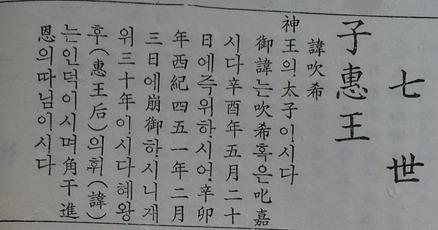 七世
子惠王
諱吹希
神王의太子이시다
御諱는吹希혹은叱嘉
시다辛酉年五月二十
日에즉위하시어辛卯
年西紀四五一年二月
三日에崩御하시니재
위三十年이시다혜왕
후(惠王后)의휘(諱)
는인덕이시며角干進
恩의따님이시다